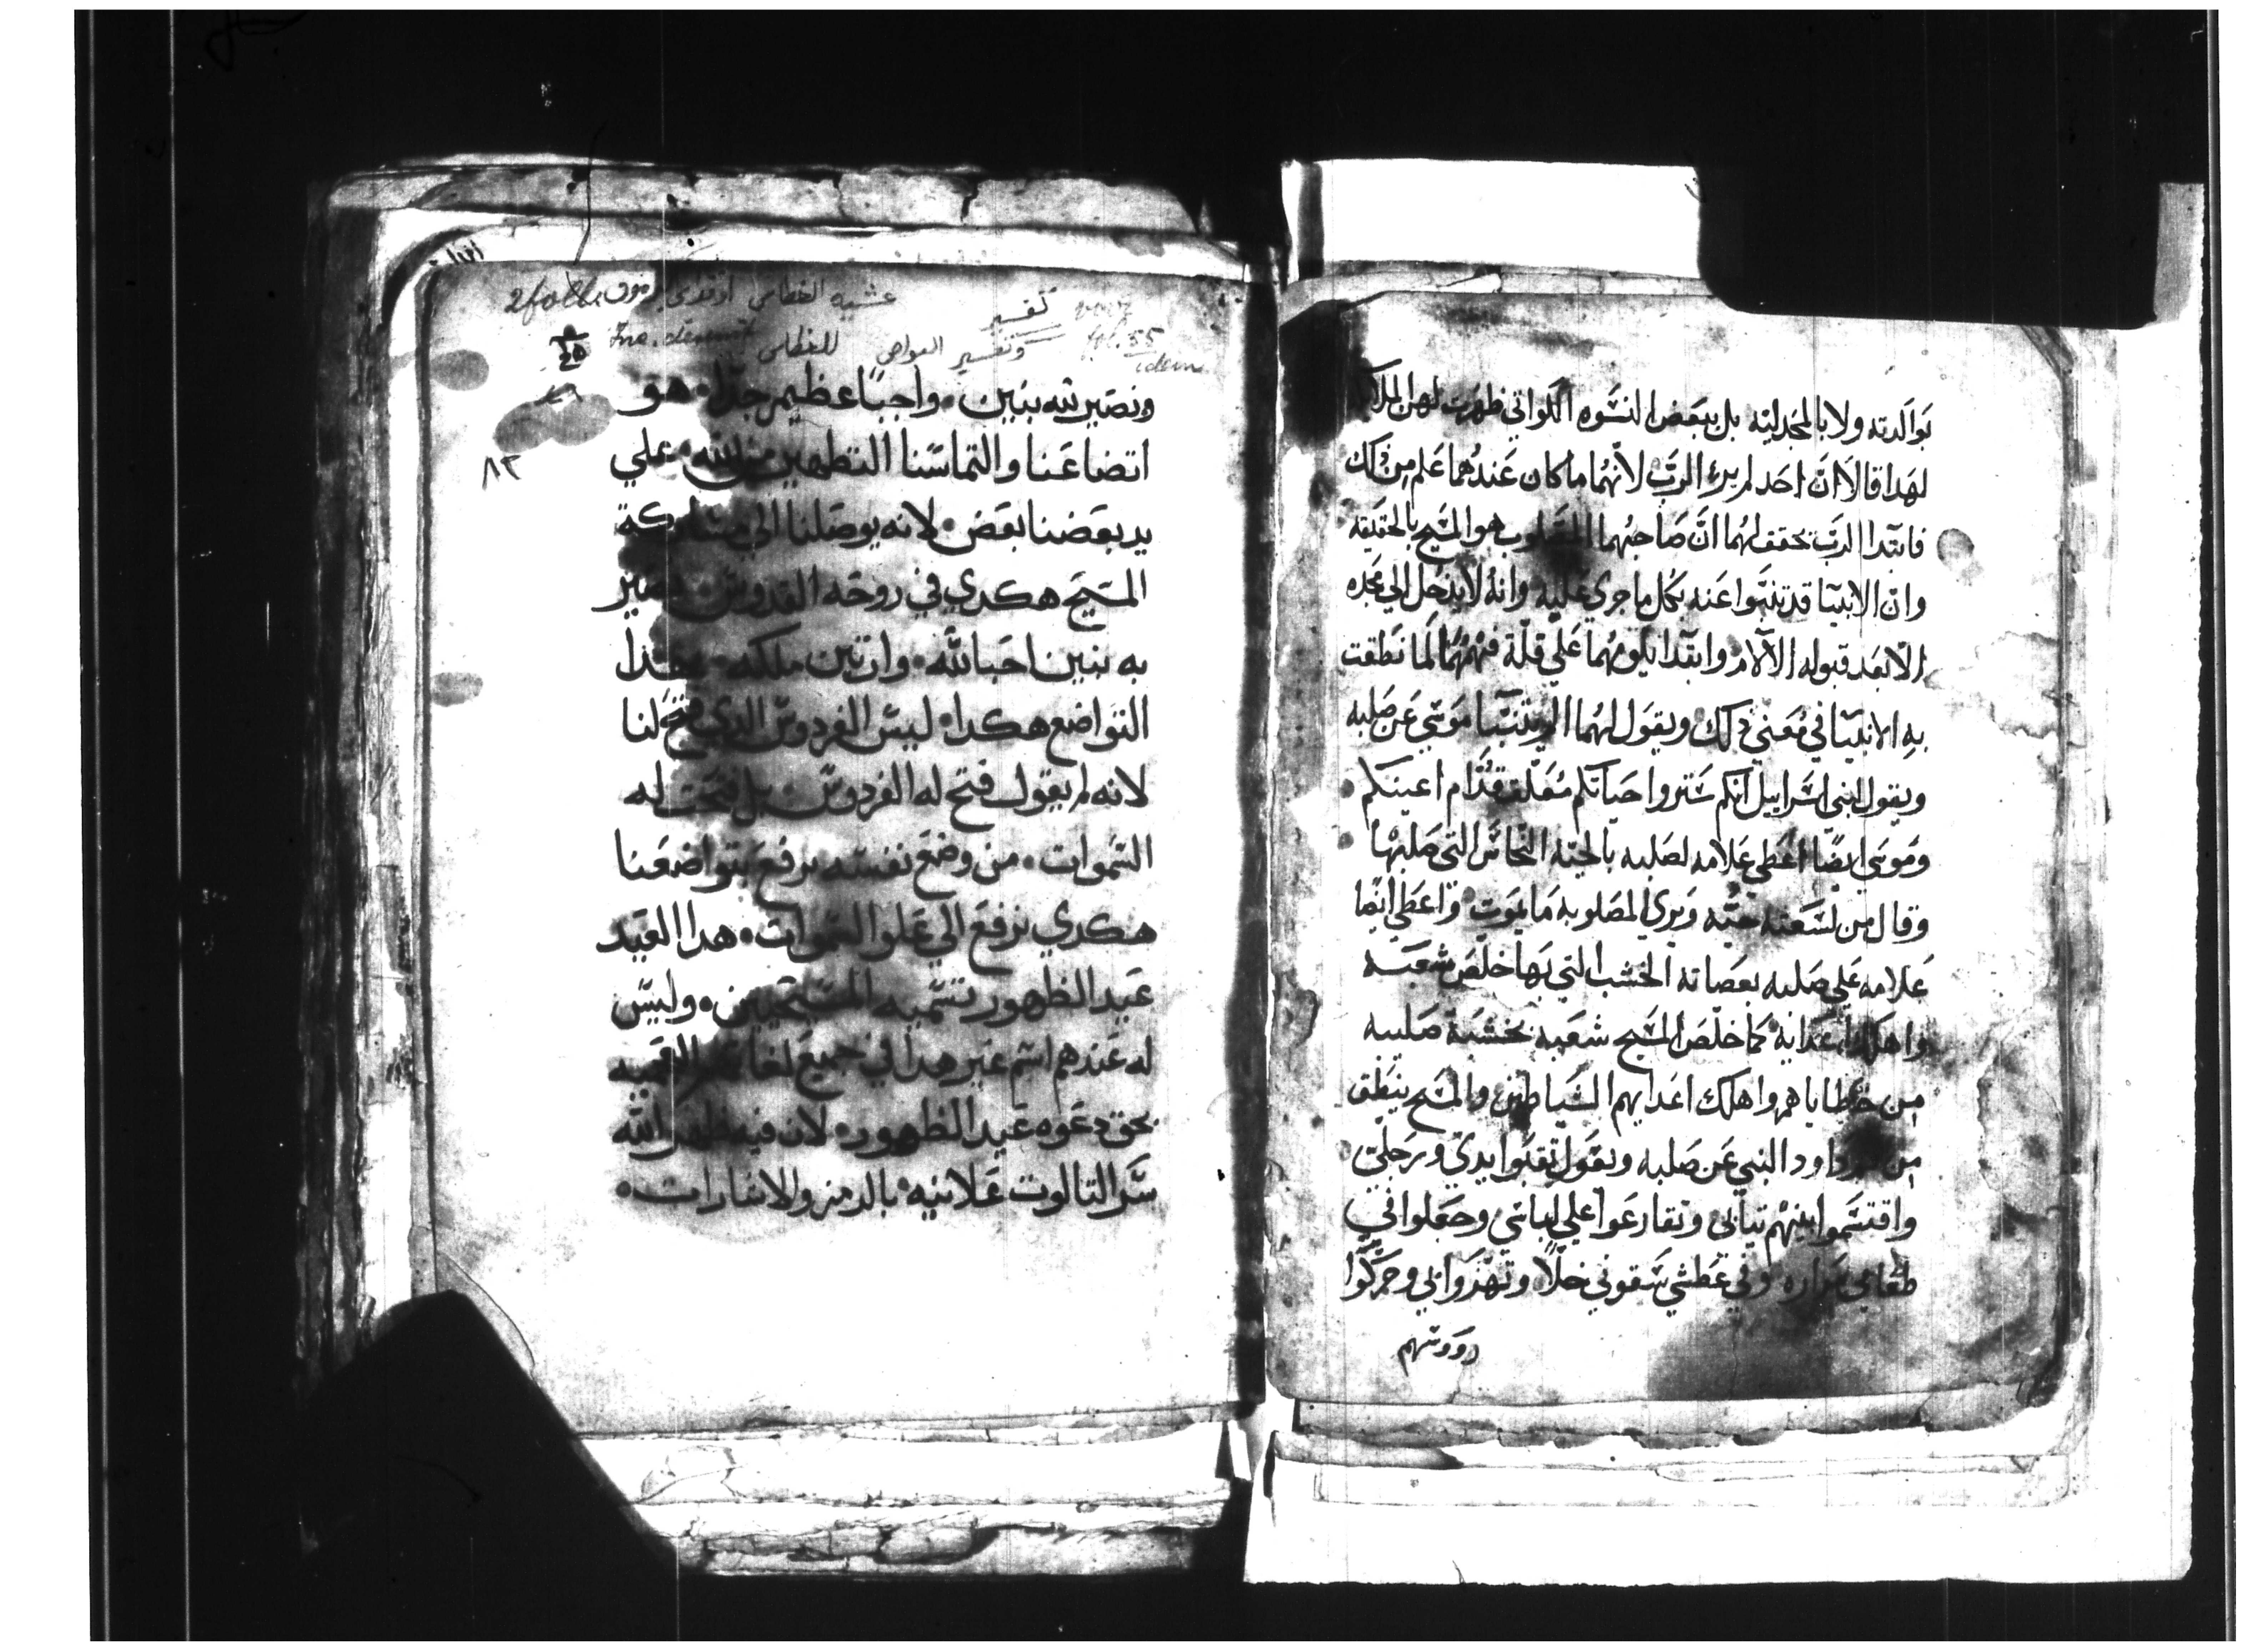 بوالدته ولا بالمجدليه بل ببعض النسوه اللواتي ظهرت لهن الملايكه
لهدا قالا ان احد لم يري الرب لانهما ما كان عندهما علم من دلك
فابتدا الرب يحقق لهما ان صاحبهما المصلوب هو المسيح بالحقيقه
وان الانبيا قد تنبوا عنه بكل ما جري عليه وانه لا يدخل الي مجده
الا بعد قبوله الالام وابتدا يلومهما علي قلة فهمهما لما نطقت
به الانبيا في معني دلك ويقول لهما الم يتنبا موسي عن صلبه
ويقول لبني اسراييل انكم ستروا حياتكم معلقه قدام اعينكم
وموسي ايضا اعطي علامه لصلبه بالحيه النحاس التي صلبها
وقال من لسعته حيه ويري المصلوبه ما يموت واعطي ايضا
علامه علي صلبه بعصاته الخشب التي بها خلص شعبه
واهلك اعدايه كما خلص المسيح شعبه بخشبة صليبه
من خطاياهم واهلك اعدايهم الشياطين والمسيح ينطق
من داوود النبي عن صلبه ويقول تقبوا يدي ورجلي
واقتسموا بينهم تيابي وتقارعوا علي لباسي وجعلوا في
طعامي مراره وفي عطشي سقوني خلا وتهزوا بي وحركوا
رووسهم
2 foll.
عشيه الغطاس
تفسير
fol. 55
وتفسير
للغطاس
idem
٨٣
ونصير تيه بنين · واجبا عظيم جدا · هو
اتضاعنا والتماسنا التطهير من الله · علي
يد بعضنا بعض · لانه يوصلنا الي مشاركة
المسيح هكدي في روحه القدوس · نصير
به بنين احبا لله · وارتين ملكه ·
التواضع هكدا · ليس الفردوس الدي فتح لنا
لانه لم يقول فتح له الفردوس · بل فتحت له
السموات · من وضع نفسه يرفع بتواضعنا
هكدي نرفع الي علو السموات · هدا العيد
عيد الظهور تسميه المسيحيين · وليس
له عندهم اسم غير هدا في جميع لغا
بحق دعوه عيد الظهور · لان فيه ظهر الله
سر التالوت علانيه · بالرمز والاشارات ·